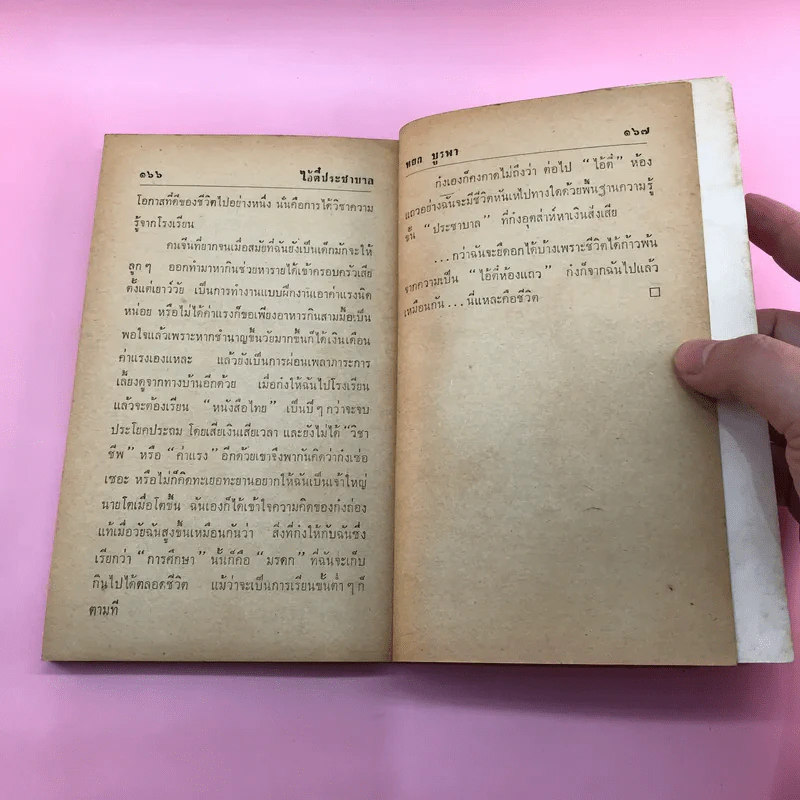 ๑๖๖ ไอ้ตี๋ประชาบาล
โอกาสที่ดีของชีวิตไปอย่างหนึ่ง นั่นคือการได้วิชาความ
รู้จากโรงเรียน
คนจีนที่ยากจนเมื่อสมัยที่ฉันยังเป็นเด็กมักจะให้
ลูกๆ ออกทำมาหากินช่วยหารายได้เข้าครอบครัวเสีย
ตั้งแต่เยาว์วัย เป็นการทำงานแบบฝึกงานเอาค่าแรงนิด
หน่อย หรือไม่ได้ค่าแรงก็ขอเพียงอาหารกินสามมื้อเป็น
พอใจแล้วเพราะหากชำนาญขึ้นวัยมากขึ้นก็ได้เงินเดือน
ค่าแรงเองแหละ แล้วยังเป็นการผ่อนเพลาภาระการ
เลี้ยงดูจากทางบ้านอีกด้วย เมื่อก๋งให้ฉันไปโรงเรียน
แล้วจะต้องเรียน “หนังสือไทย” เป็นปีๆ กว่าจะจบ
ประโยคประถม โดยเสียเงินเสียเวลา และยังไม่ได้ “วิชา
ชีพ” หรือ “ค่าแรง” อีกด้วยเขาจึงพากันคิดว่าก๋งเซ่อ
เซอะ หรือไม่ก็คิดทะเยอทะยานอยากให้ฉันเป็นเจ้าใหญ่
นายโตเมื่อโตขึ้น ฉันเองก็ได้เข้าใจความคิดของก๋งถ่อง
แท้เมื่อวัยฉันสูงขึ้นเหมือนกันว่า สิ่งที่ก๋งให้กับฉันซึ่ง
เรียกว่า “การศึกษา” นั้นก็คือ “มรดก” ที่ฉันจะเก็บ
กินไปได้ตลอดชีวิต แม้ว่าจะเป็นการเรียนขั้นต่ำๆ ก็
ตามที
หยก บูรพา ๑๖๗
ก๋งเองก็คงคาดไม่ถึงว่า ต่อไป “ไอ้ตี๋” ห้อง
แถวอย่างฉันจะมีชีวิตหันเหไปทางใดด้วยพื้นฐานความรู้
ชั้น “ประชาบาล” ที่ก๋งอุตส่าห์หาเงินส่งเสีย
...กว่าฉันจะยืดอกได้บ้างเพราะชีวิตได้ก้าวพ้น
จากความเป็น “ไอ้ตี๋ห้องแถว” ก๋งก็จากฉันไปแล้ว
เหมือนกัน...นี่แหละคือชีวิต □